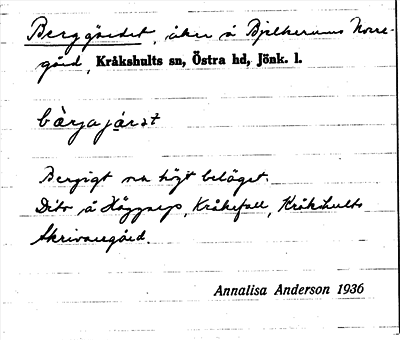 Berggärdet, åker å Bjälkerums Norre-
gård, Kråkshults sn, Östra hd, Jönk. l.
bàrjajá̤rst
Bergigt och högt beläget.
Dito å Häggarp, Kråkefall, Kråkshults
Skrivaregård.
Annalisa Anderson 1936